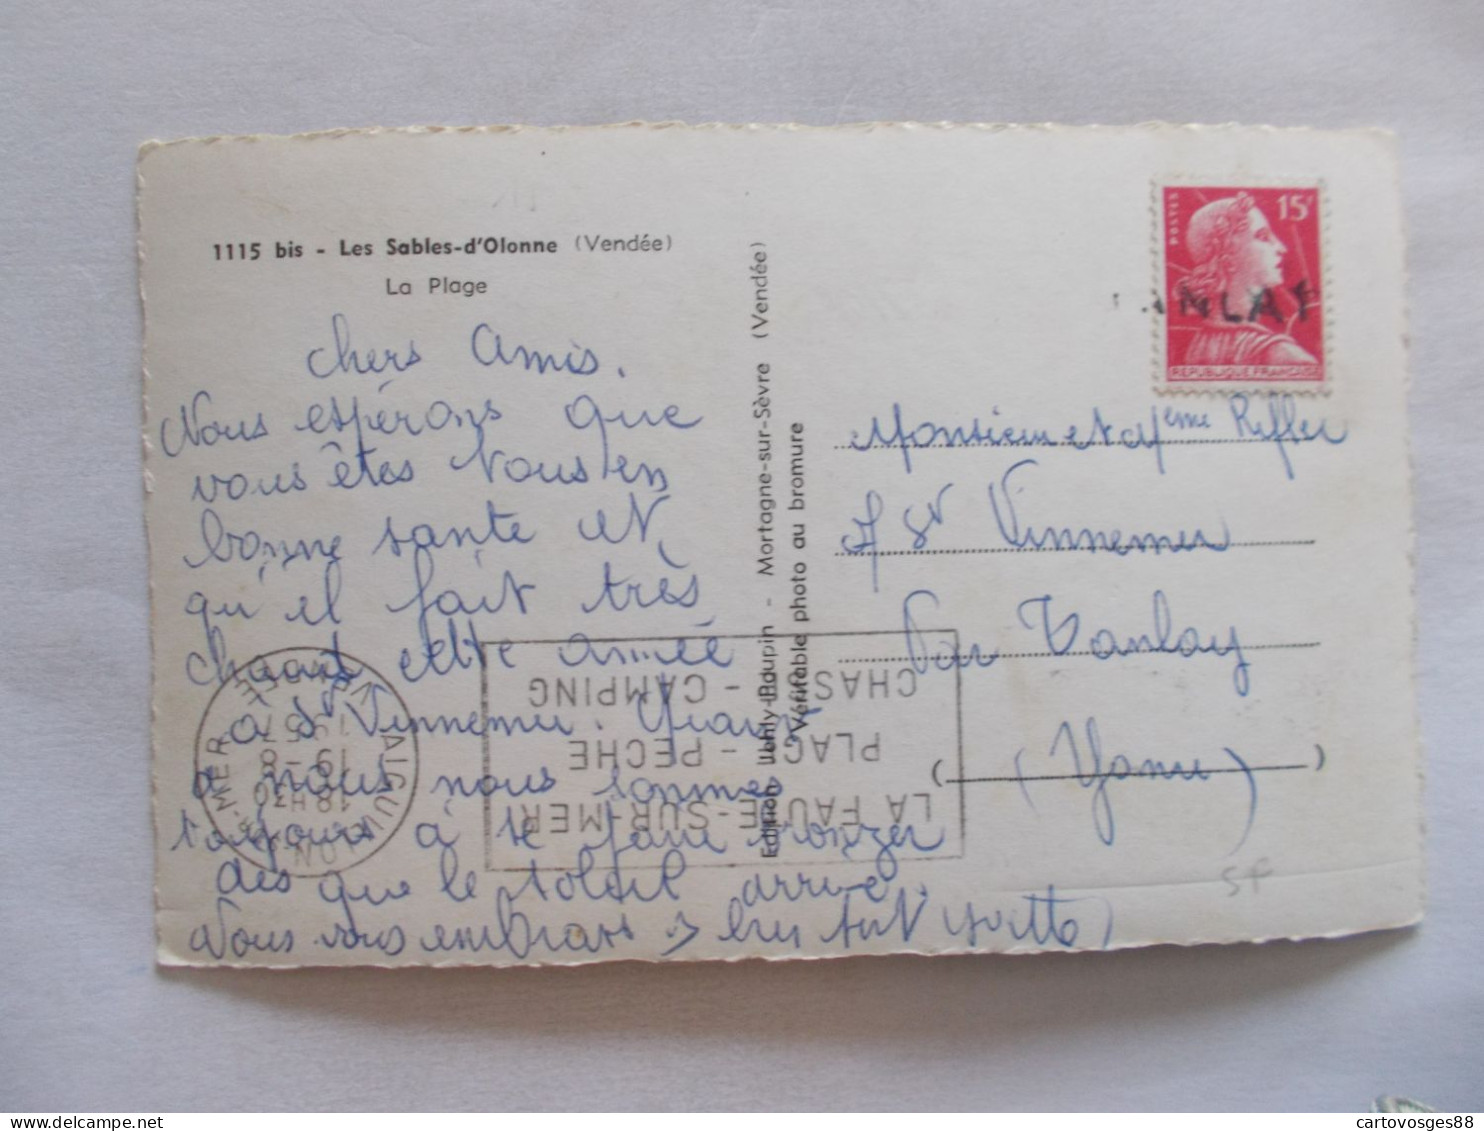 1115 bis - Les Sables-d'Olonne (Vendée)
La Plage
chers Amis.
Nous espérons que
vous êtes tous en
bonne santé et
qu'il fait très
chaud cette année
à St Vinnemer. Quant
à nous nous sommes
toujours à se faire bronzer
dès que le soleil arrive.
Nous vous embrassons bien fort Yvette
Edition - Mortagne-sur-Sèvre (Vendée)
Véritable photo au bromure
POSTES
15F
REPUBLIQUE FRANÇAISE
ANLAY
Monsieur et Mme
St Vinnemer
Par Tanlay
(Yonne)
SF
LA FAUTE-SUR-MER
PLAGE - PECHE
CHASSE - CAMPING
L'AIGUILLON-S-MER
VENDEE
18H30
19-8
1957
cartovosges88